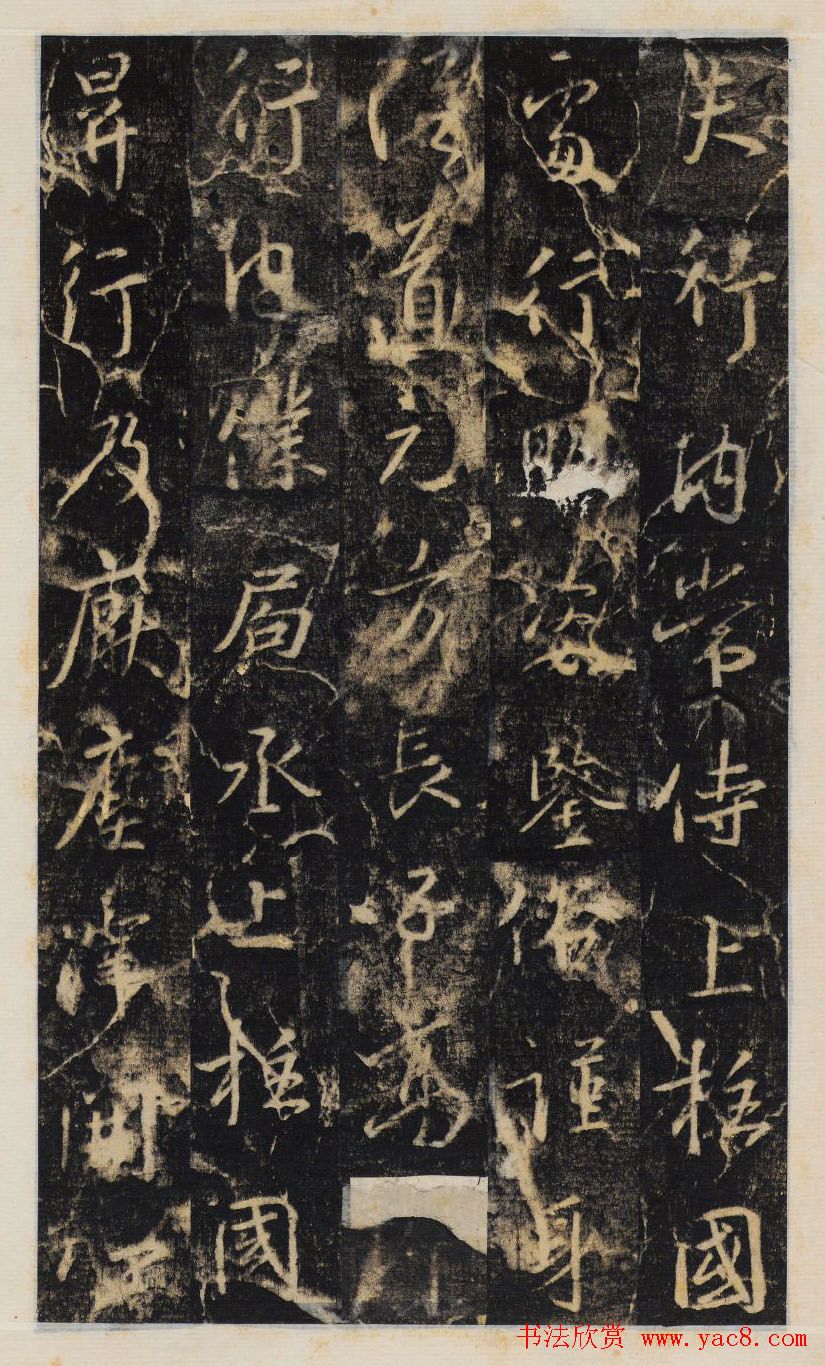 失行内常侍上柱國
行明姿鑒俗謹身
道方長子
行内僕局丞上柱國
昇行及塵
书法欣赏 www.yac8.com